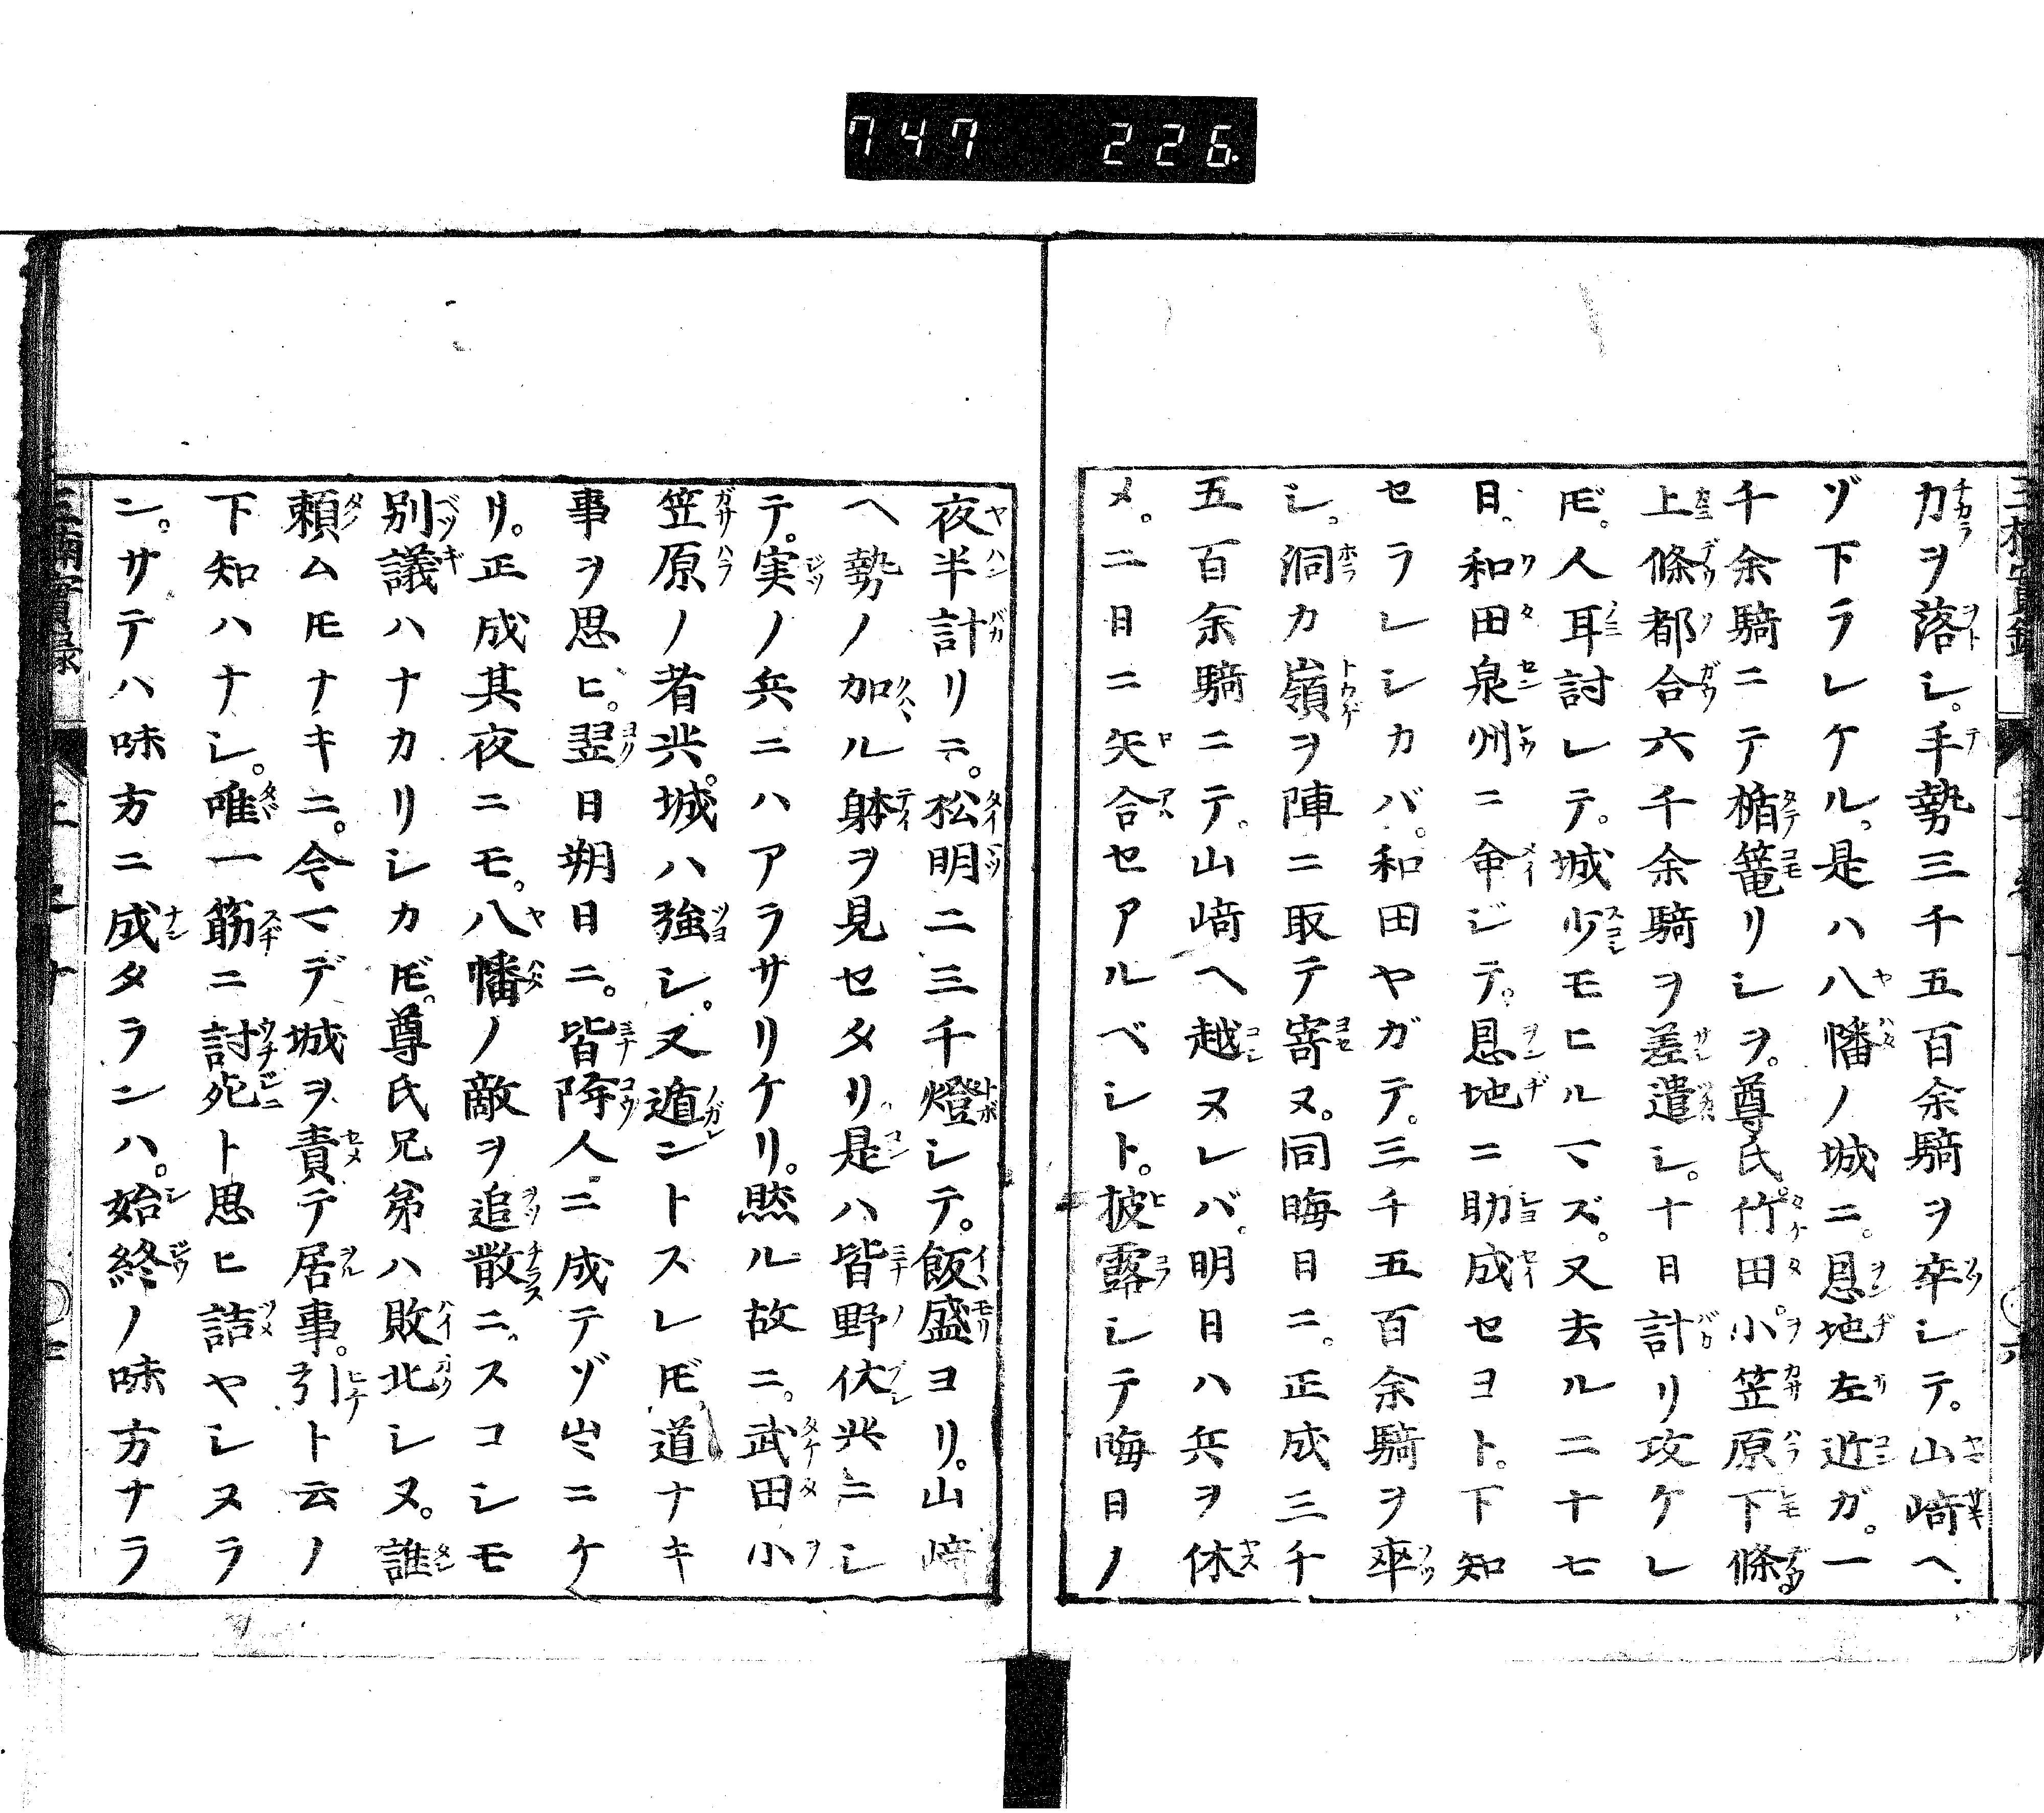 747 226
力ヲ落シ。手勢三千五百余騎ヲ卒シテ。山﨑ヘ
ゾ下ラレケル。是ハ八幡ノ城ニ。恩地左近ガ。一
千余騎ニテ楯篭リシヲ。尊氏。竹田。小笠原下條
上條都合六千余騎ヲ差遣シ。十日計リ攻ケレ
𪜈。人耳討レテ。城少モヒルマズ。又去ル二十七
日。和田泉州ニ命ジテ。恩地ニ助成セヨト。下知
セラレシカバ。和田ヤガテ。三千五百余騎ヲ卒
シ。洞カ嶺ヲ陣ニ取テ寄ヌ。同晦日ニ。正成三千
五百余騎ニテ。山﨑ヘ越ヌレバ。明日ハ兵ヲ休
メ。二日ニ矢合セアルベシト。披露シテ晦日ノ
夜半計リニ。松明二三千燈シテ。飯盛ヨリ。山﨑
ヘ勢ノ加ル躰ヲ見セタリ。是ハ皆野伏共ニシ
テ。実ノ兵ニハアラサリケリ。然ル故ニ。武田小
笠原ノ者共。城ハ強シ。又遁ントスレ𪜈道ナキ
事ヲ思ヒ。翌日朔日ニ。皆降人ニ成テゾ出ニケ
リ。正成其夜ニモ。八幡ノ敵ヲ追散ニ。スコシモ
別議ハナカリシカ𪜈。尊氏兄弟ハ敗北シヌ。誰
頼ムモナキニ。今マデ城ヲ責テ居事。引ト云ノ
下知ハナシ。唯一筋ニ討死ト思ヒ詰ヤシヌラ
ン。サテハ味方ニ成タランハ。始終ノ味方ナラ